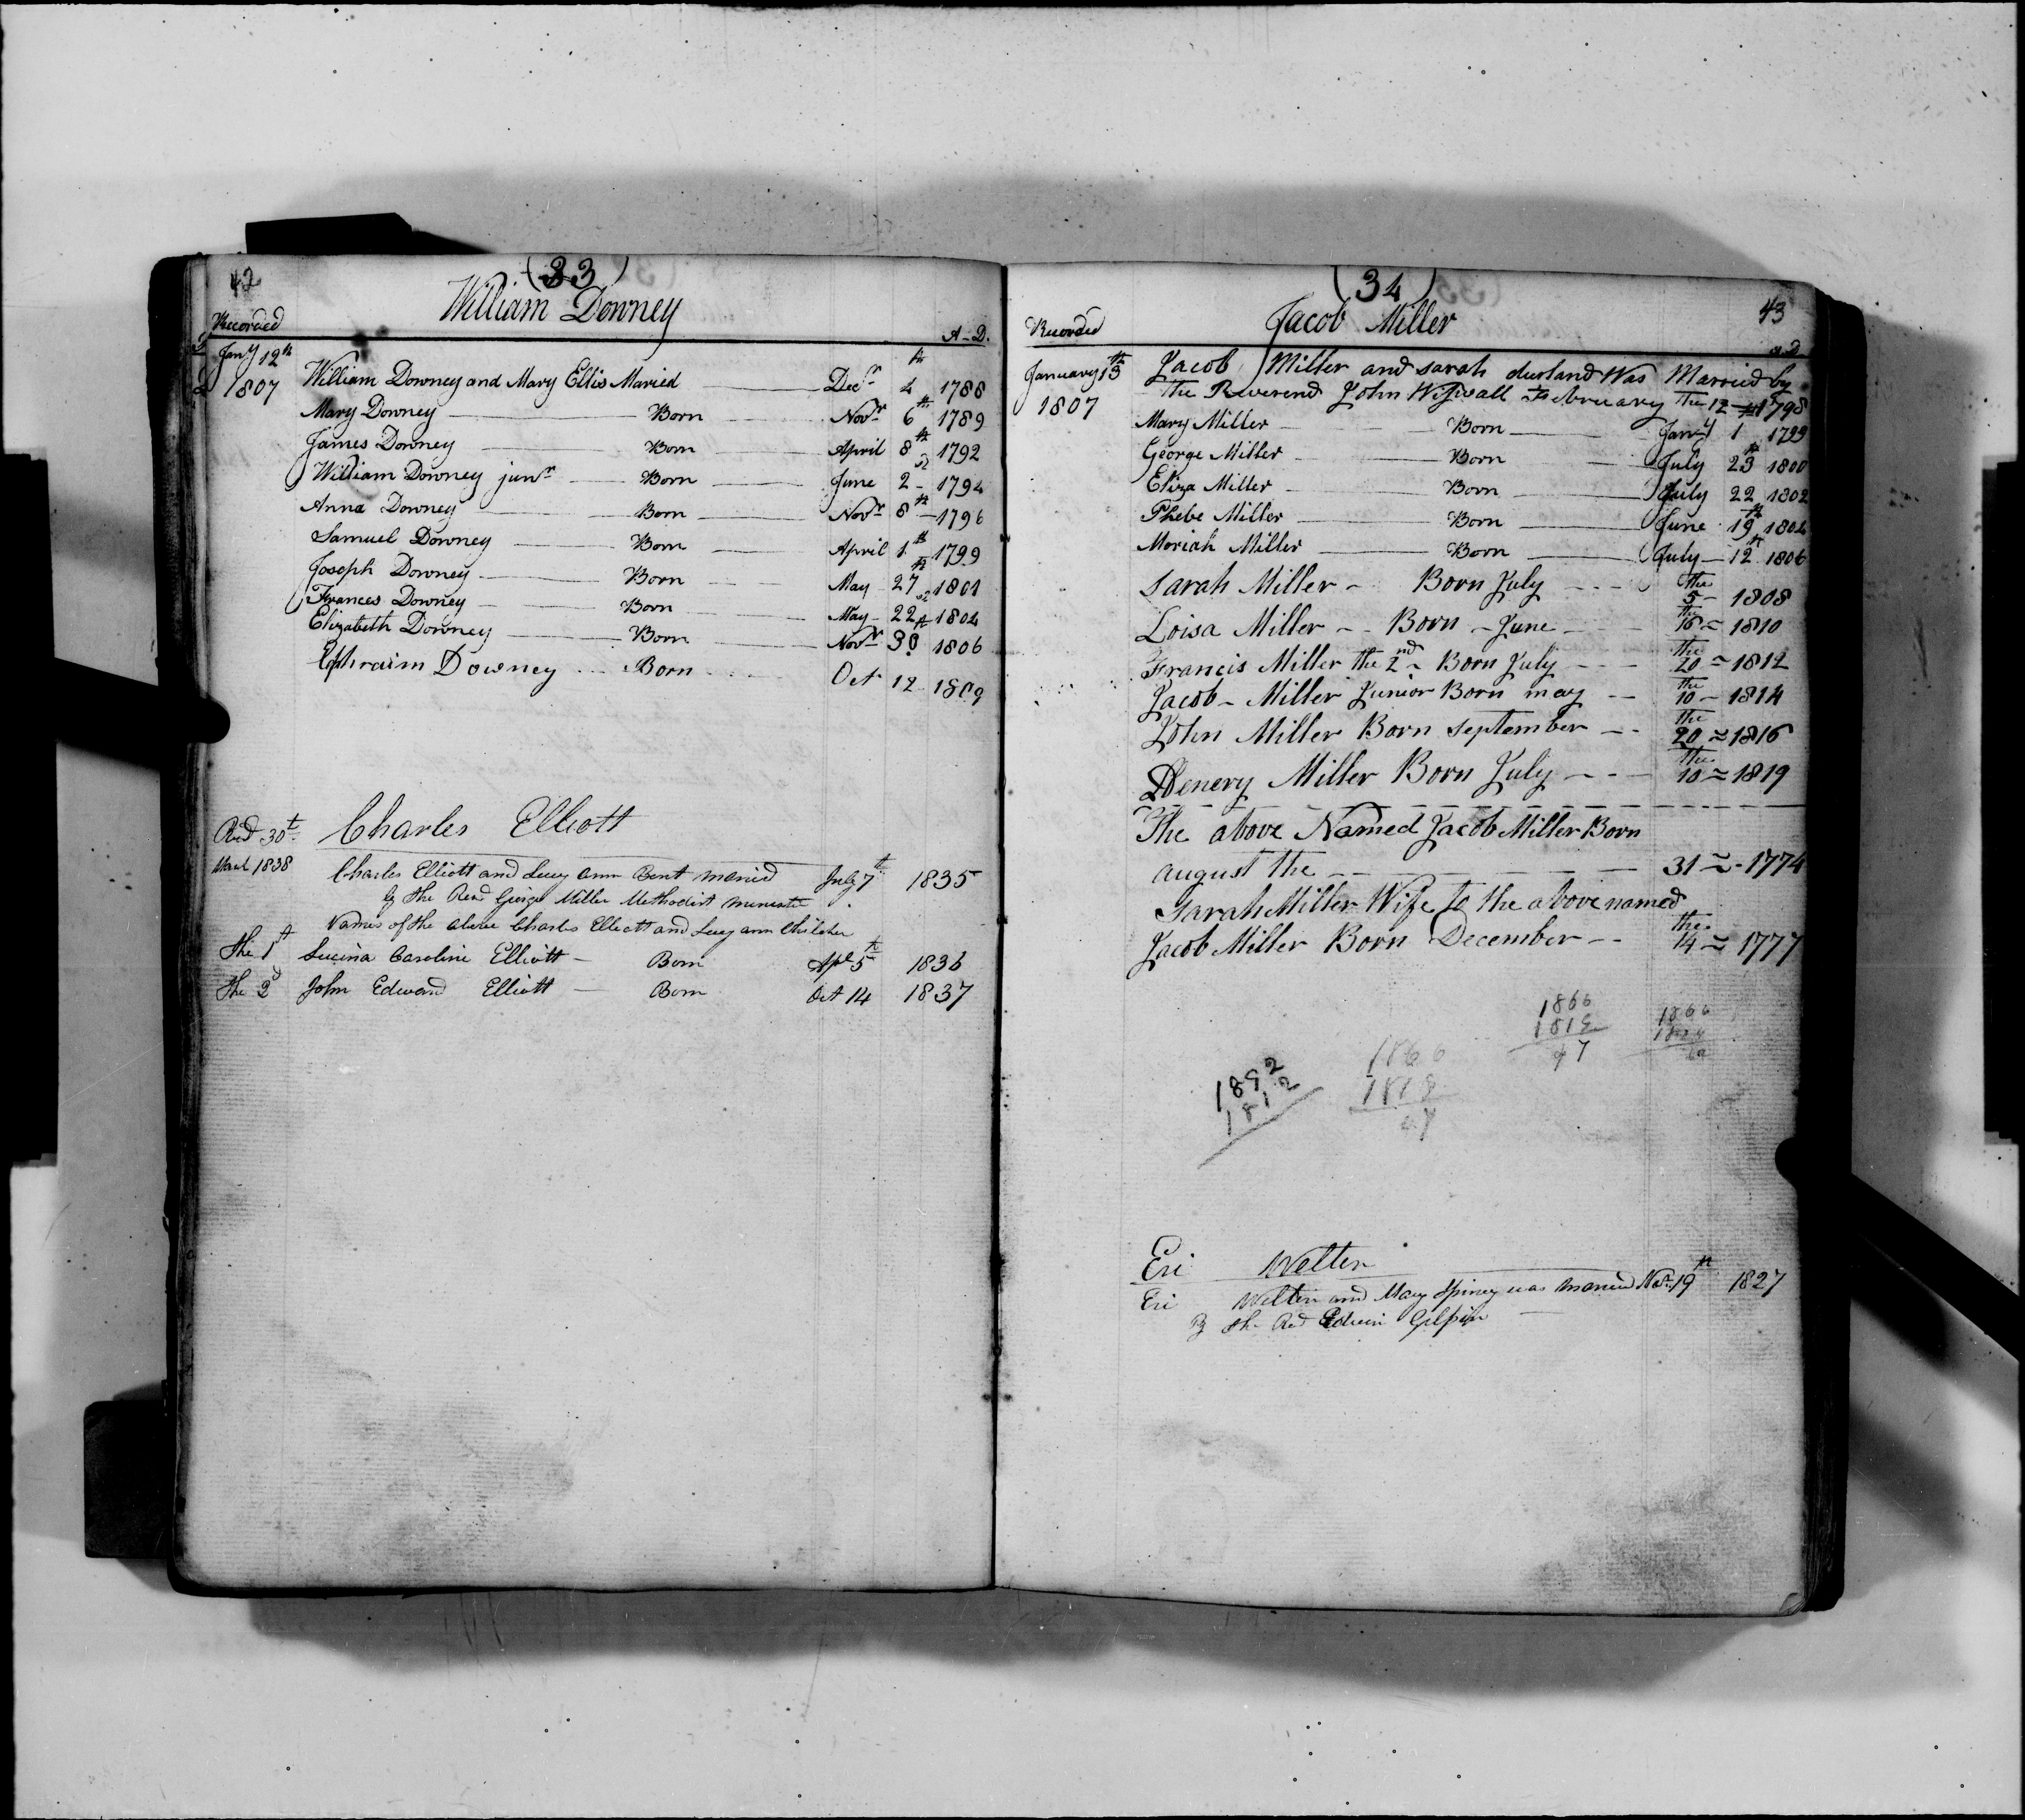 42
(33)
William Downey
Recorded A-D.
Jany 12th 1807
William Downey and Mary Ellis Maried Decr 4th 1788
Mary Downey Born Novr 6th 1789
James Downey Born April 8th 1792
William Downey junr Born June 2d 1794
Anna Downey Born Novr 8th 1796
Samuel Downey Born April 1th 1799
Joseph Downey Born May 27th 1801
Frances Downey Born May 22d 1804
Elizabeth Downey Born Novr 30th 1806
Ephraim Downey Born Oct 12 1809
Red 30t March 1838
Charles Elliott
Charles Elliott and Lucy ann Bent maried July 7t 1835
by the Revd George Miller Methodist minester
Names of the above Charles Elliott and Lucy ann Children
the 1t Lucina Caroline Elliott - Born Apl 5t 1836
the 2d John Edward Elliott - Born Oct 14 1837
(34)
43
Jacob Miller
Recorded a D
January 13th 1807
Jacob Miller and sarah durland Was Married by
the Reverend John Wiswall February the 12th 1798
Mary Miller Born Jany 1 1799
George Miller Born July 23th 1800
Eliza Miller Born July 22 1802
Phebe Miller Born June 19th 1804
Moriah Miller Born July 12th 1806
Sarah Miller - Born July the 5 - 1808
Loisa Miller - Born - June the 16 1810
Francis Miller the 2nd Born July the 20 = 1812
Jacob - Miller Junior Born may the 10 - 1814
John Miller Born september the 20 = 1816
Henery Miller Born July the 10 = 1819
The above Named Jacob Miller Born
august the 31 = 1774
Sarah Miller Wife to the above named
Jacob Miller Born December the 14 = 1777
1866
1819
47
1866
1866
1819
47
1892
1812
Eri Welten
Eri Welten and Mary Spiney was maried Novr 19th 1827
By the Red Edwin Gilpin